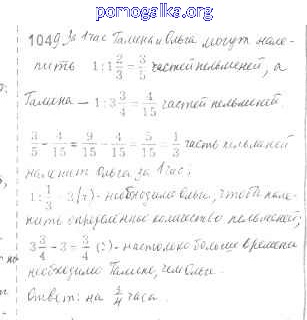 pomogalka.org
1049. За 1 час Галина и Ольга могут нале-
пить 1 : 1 2/3 = 3/5 частей пельменей, а
Галина — 1 : 3 3/4 = 4/15 частей пельменей.
3/5 - 4/15 = 9/15 - 4/15 = 5/15 = 1/3 часть пельменей
налепит Ольга за 1 час.
1 : 1/3 = 3 (ч) - необходимо Ольге, чтобы нале-
пить определённое количество пельменей;
3 3/4 - 3 = 3/4 (ч) - настолько больше времени
необходимо Галине, чем Ольге.
Ответ: на 3/4 часа.